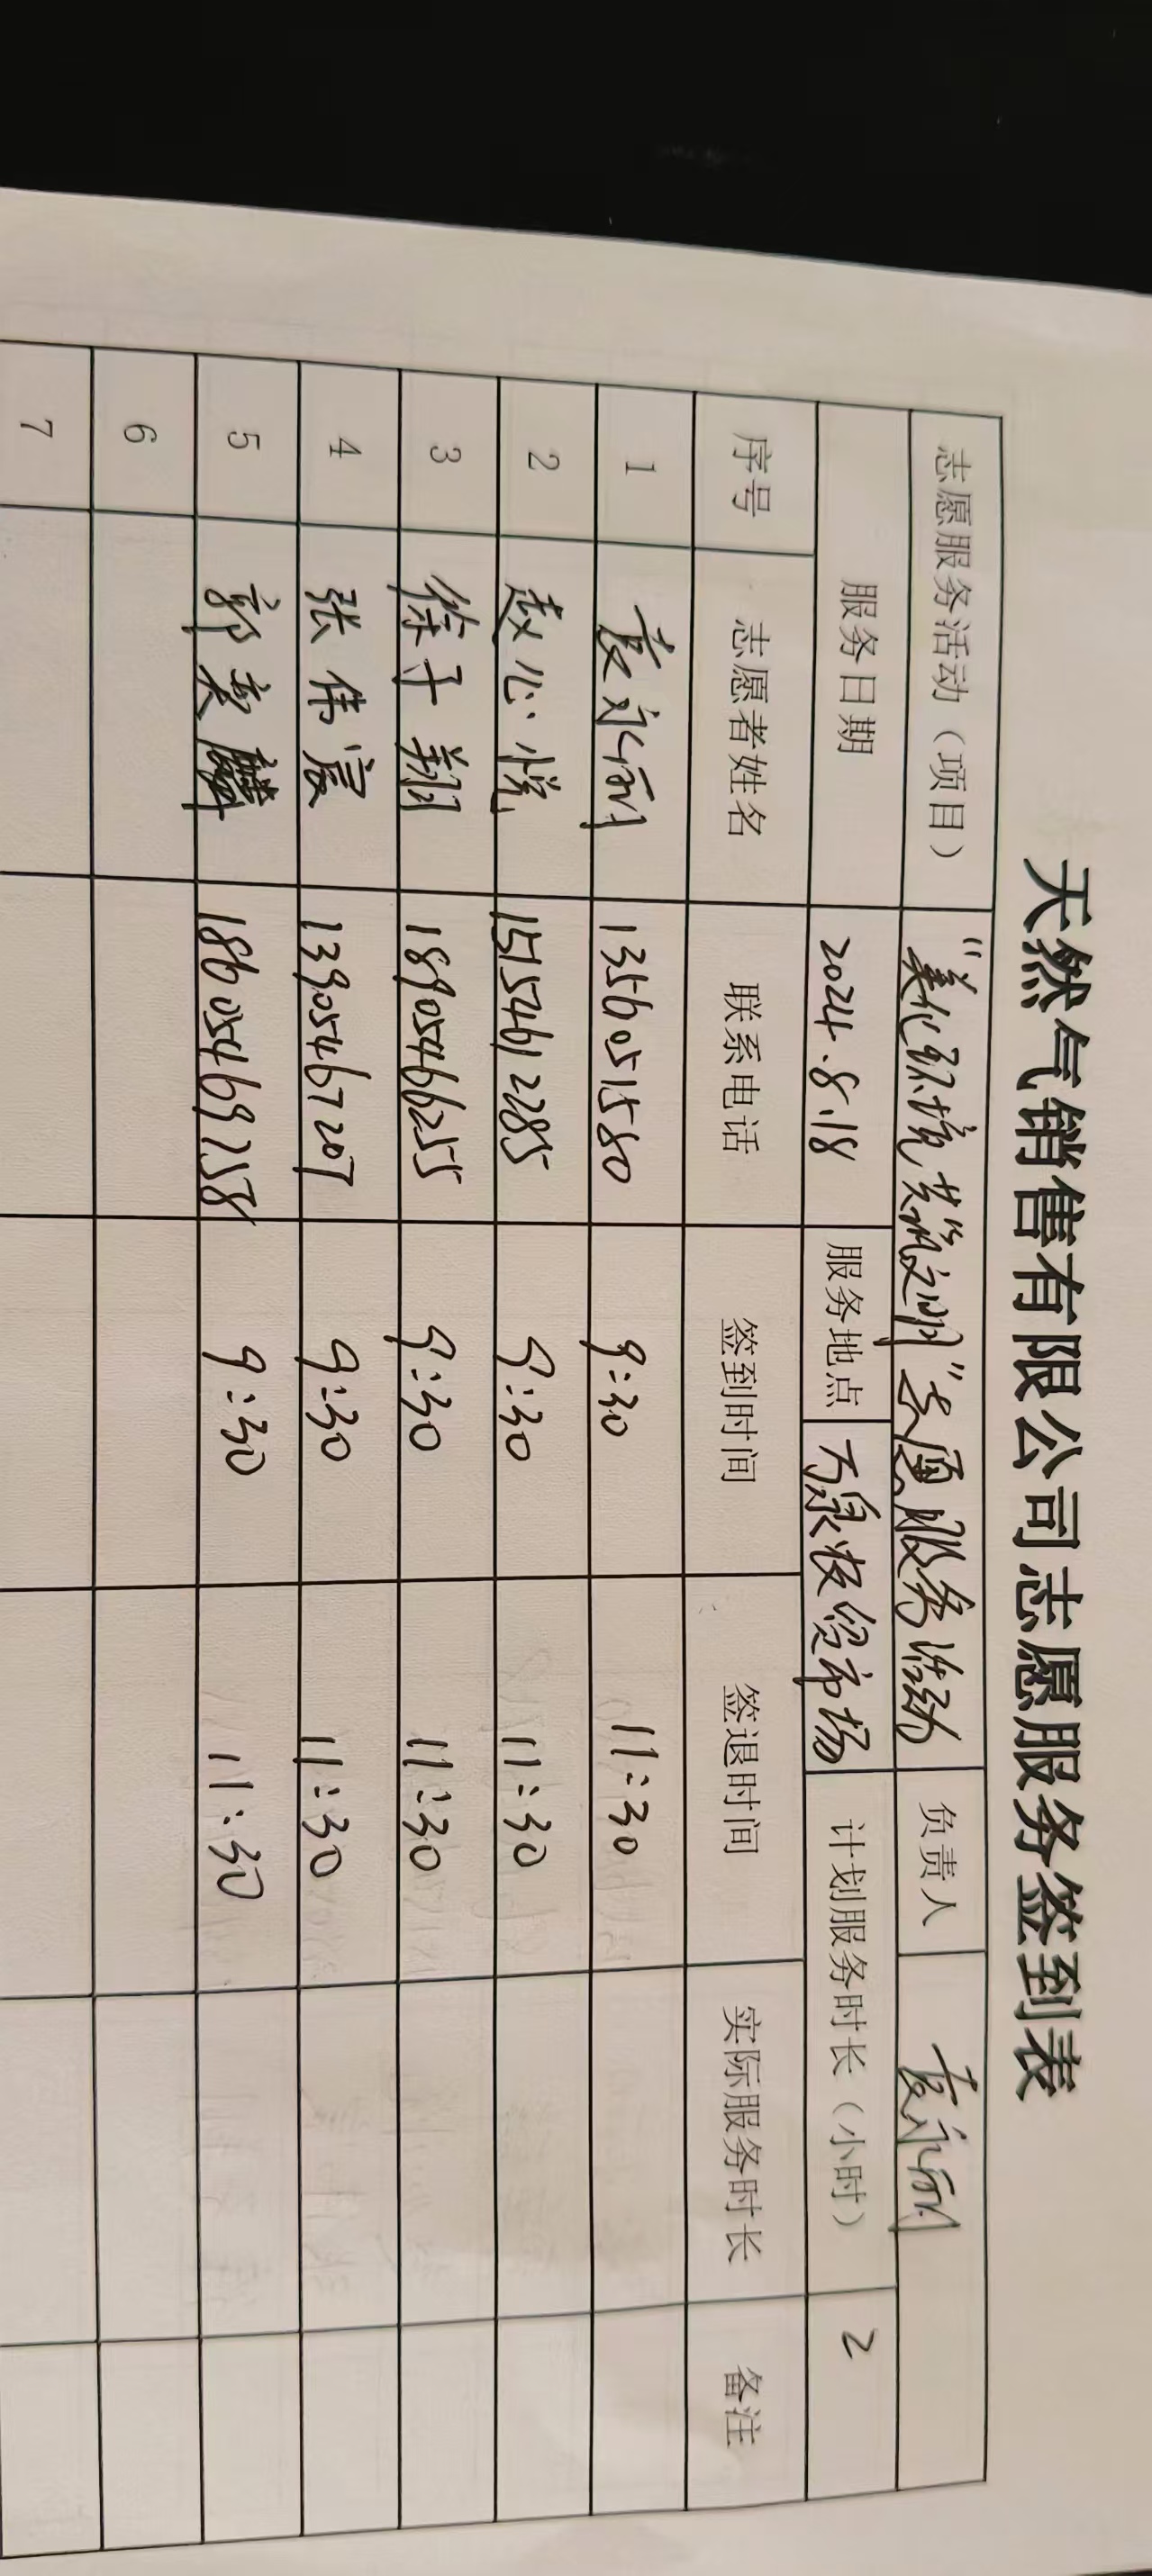 天然气销售有限公司志愿服务签到表
志愿服务活动（项目） “美化环境 共筑文明”志愿服务活动 负责人 袁永丽
服务日期 2024.8.18 服务地点 万泉农贸市场 计划服务时长（小时） 2
序号 志愿者姓名 联系电话 签到时间 签退时间 实际服务时长 备注
1 袁永丽 1356051580 9:30 11:30
2 赵心悦 15154612285 9:30 11:30
3 徐子翔 18905466255 9:30 11:30
4 张伟宸 13905467207 9:30 11:30
5 郭奕麟 18605469758 9:30 11:30
6
7